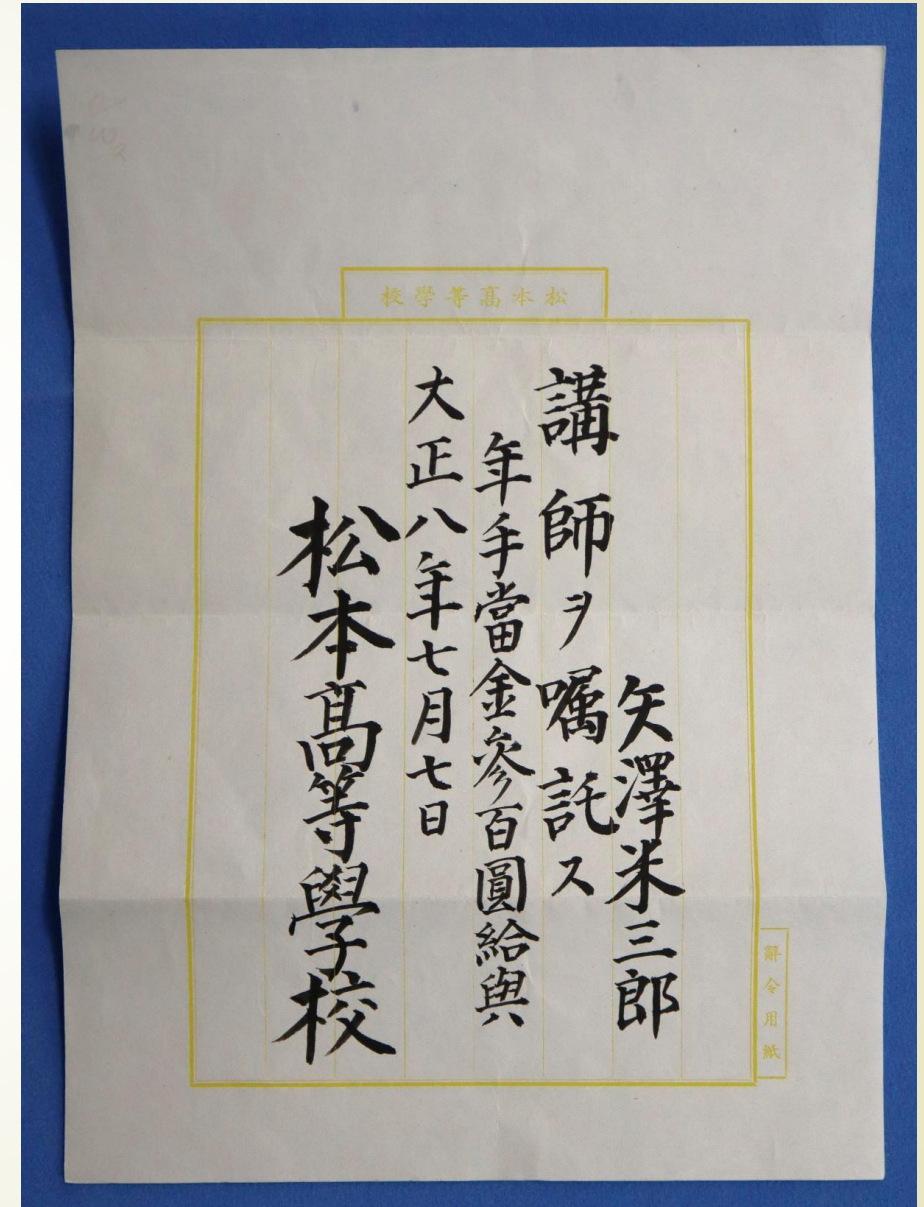 松本高等學校
矢澤米三郎
講師ヲ嘱託ス
年手當金參百圓給與
大正八年七月七日
松本髙等學校
辭令用紙